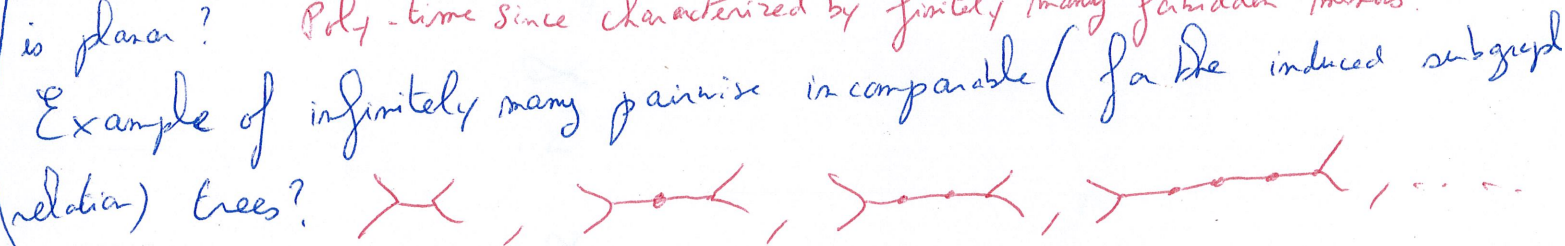 is planar? Poly-time since characterized by finitely many forbidden minors.
Example of infinitely many pairwise incomparable (for the induced subgraph
relation) trees? , , , , .....